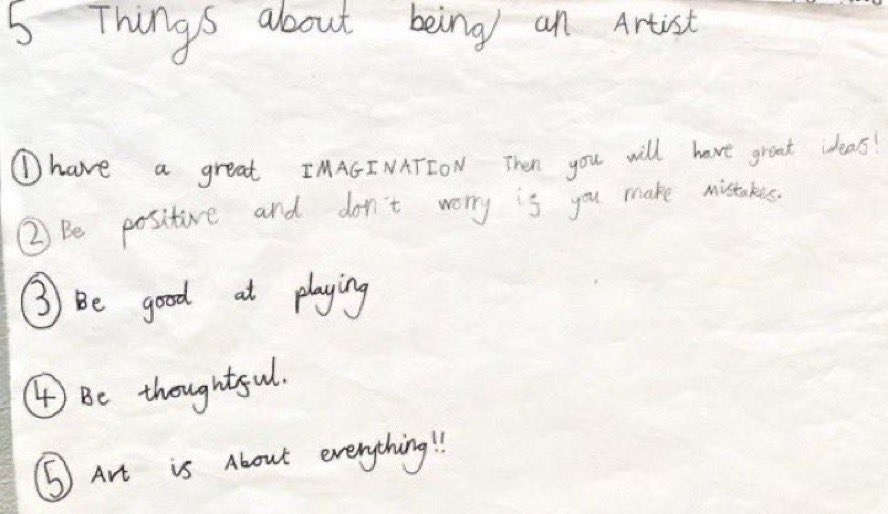 5 Things about being an Artist
① have a great IMAGINATION Then you will have great ideas!
② Be positive and don't worry if you make mistakes.
③ Be good at playing
④ Be thoughtful.
⑤ Art is About everything!!